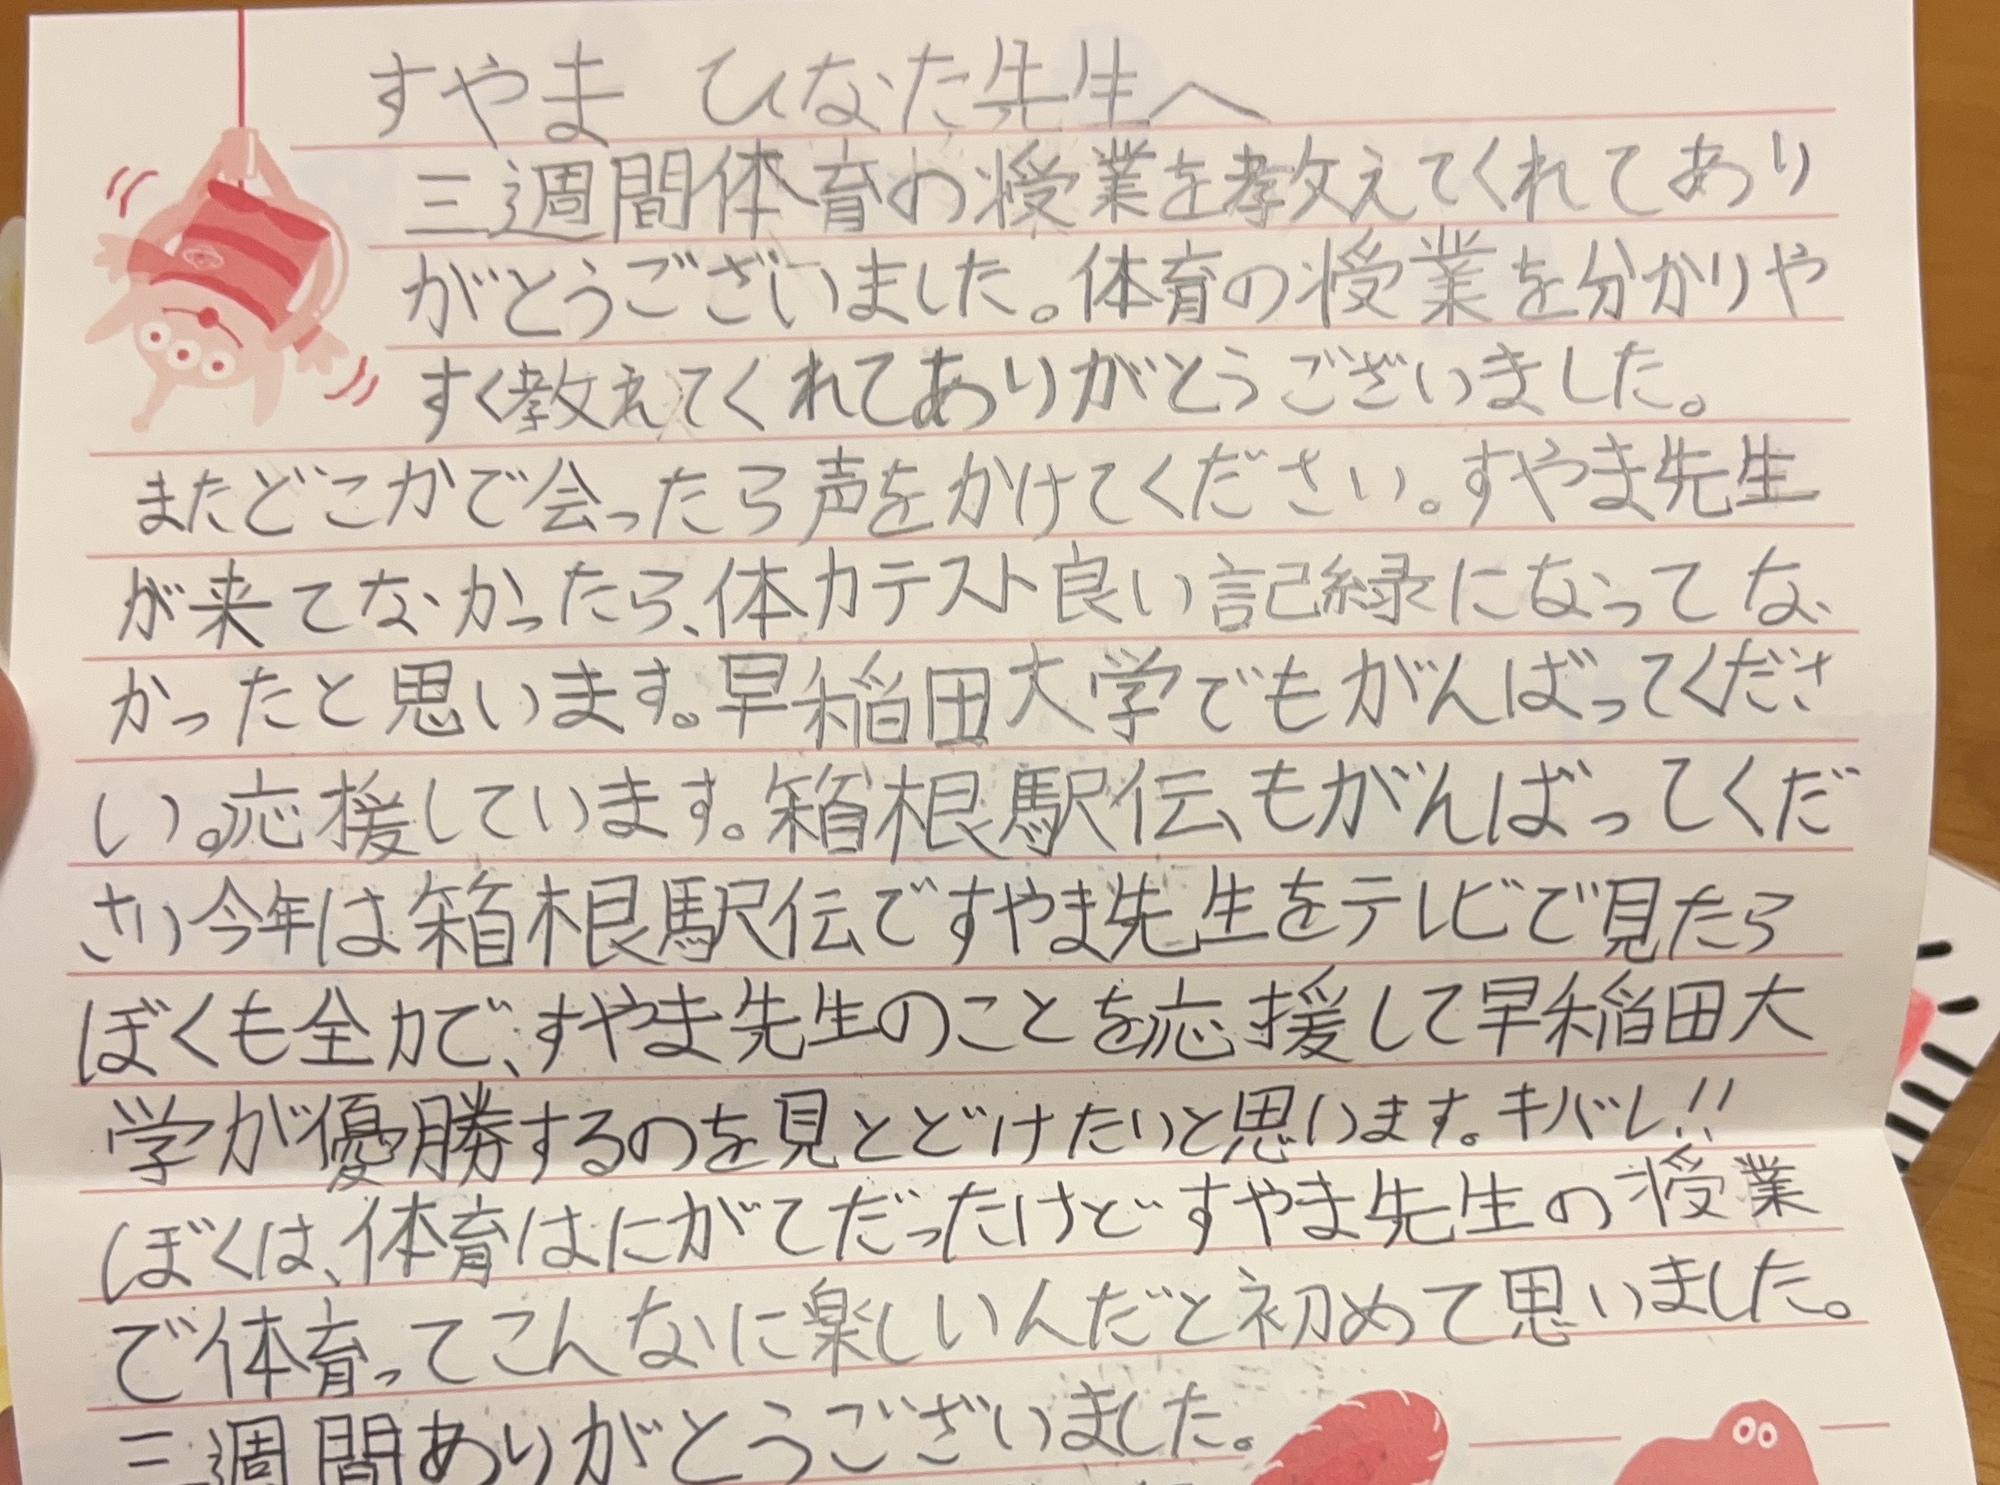 すやま ひなた先生へ
三週間体育の授業を教えてくれてあり
がとうございました。体育の授業を分かりや
すく教えてくれてありがとうございました。
またどこかで会ったら声をかけてください。すやま先生
が来てなかったら、体力テスト良い記録になってな
かったと思います。早稲田大学でもがんばってくださ
い。応援しています。箱根駅伝もがんばってくだ
さい今年は箱根駅伝ですやま先生をテレビで見たら
ぼくも全力で、すやま先生のことを応援して早稲田大
学が優勝するのを見とどけたいと思います。キバレ!!
ぼくは、体育はにがてだったけどすやま先生の授業
で体育ってこんなに楽しいんだと初めて思いました。
三週間ありがとうございました。